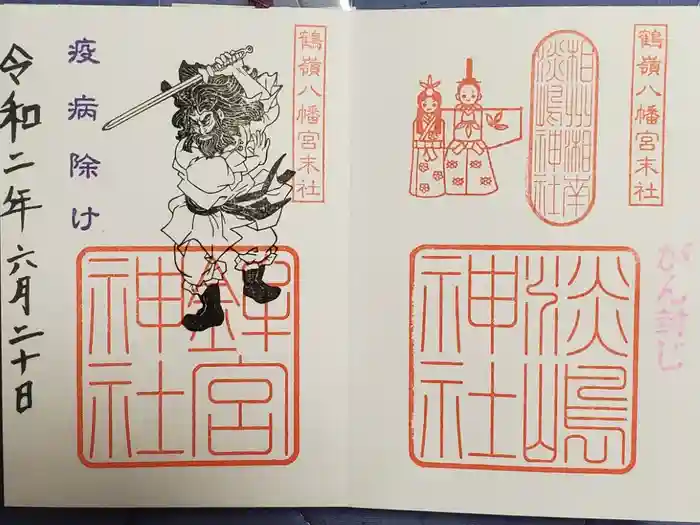 がん封じ
鶴嶺八幡宮末社
相州湘南
淡嶋神社
淡嶋
神社
鶴嶺八幡宮末社
鉾宮
神社
疫病除け
令和二年六月二十日